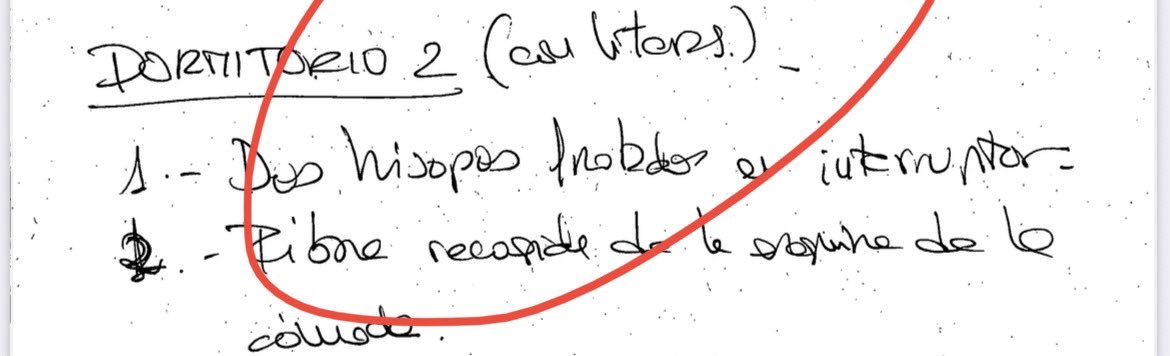 DORMITORIO 2 (con literas.) -
1.- Dos hisopos frotados en interruptor-
2.- Fibra recogida de la esquina de la
cómoda.